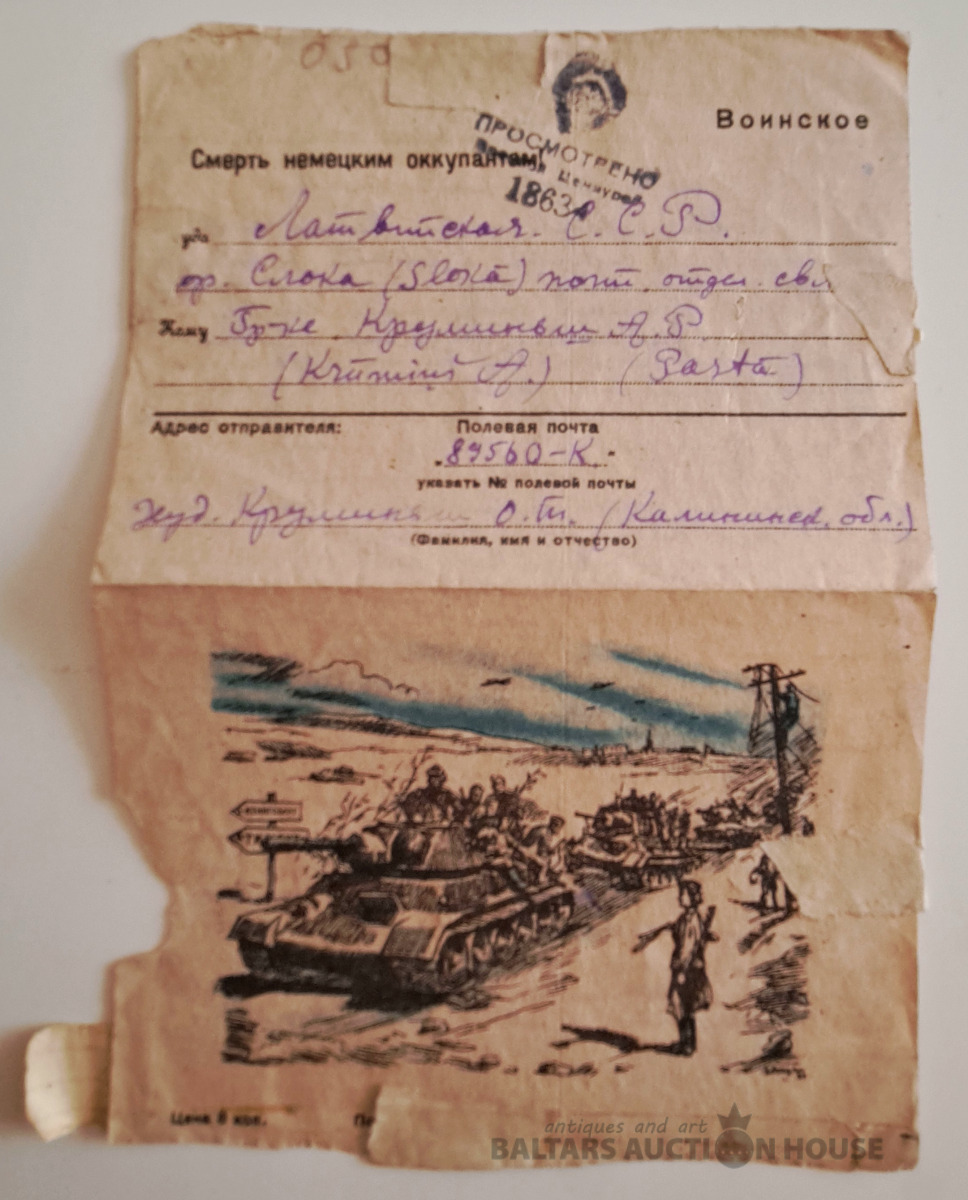 050
Воинское
Смерть немецким оккупантам!
ПРОСМОТРЕНО
Военной Цензурой
1863
Куда Латвийская С.С.Р.
гор. Слока (Sloka) почт. отдел. связ
Кому Гр-ке Круминьш А.Р.
(Krūmiņš A.) (Pasta)
Адрес отправителя:
Полевая почта
89560-К
указать № полевой почты
Круминьш О.Т. (Калининск. обл.)
(Фамилия, имя и отчество)
Цена 8 коп.
antiques and art
BALTARS AUCTION HOUSE